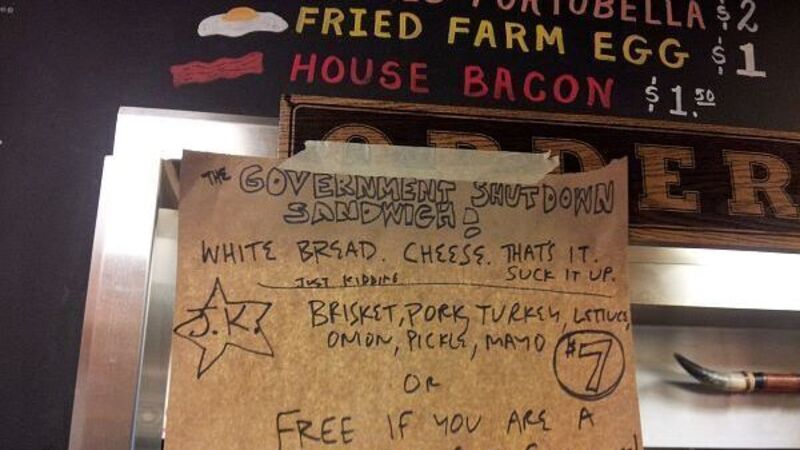 PORTOBELLA $2
FRIED FARM EGG $1
HOUSE BACON $1.50
ORDER
THE GOVERNMENT SHUTDOWN
SANDWICH!
WHITE BREAD. CHEESE. THATS IT.
SUCK IT UP.
JUST KIDDING
J.K.
BRISKET, PORK, TURKEY, LETTUCE,
ONION, PICKLE, MAYO $7
OR
FREE IF YOU ARE A